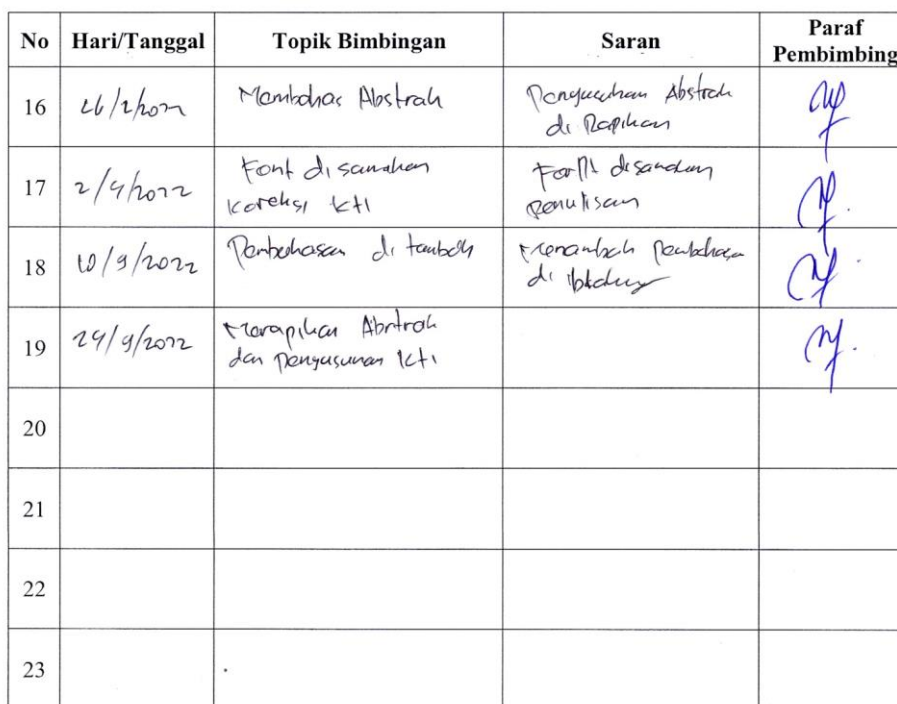 No Hari/Tanggal Topik Bimbingan Saran Paraf Pembimbing
16 Membahas Abstrak Abstrak
di Rapikan
17 2/9/2022 Font disamakan disamakan
koreksi kti penulisan
18 10/9/2022 Pembahasan di tambah Menambah Pembahasan
di
19 24/9/2022 Merapikan Abstrak
dan Pengusunan kti
20
21
22
23